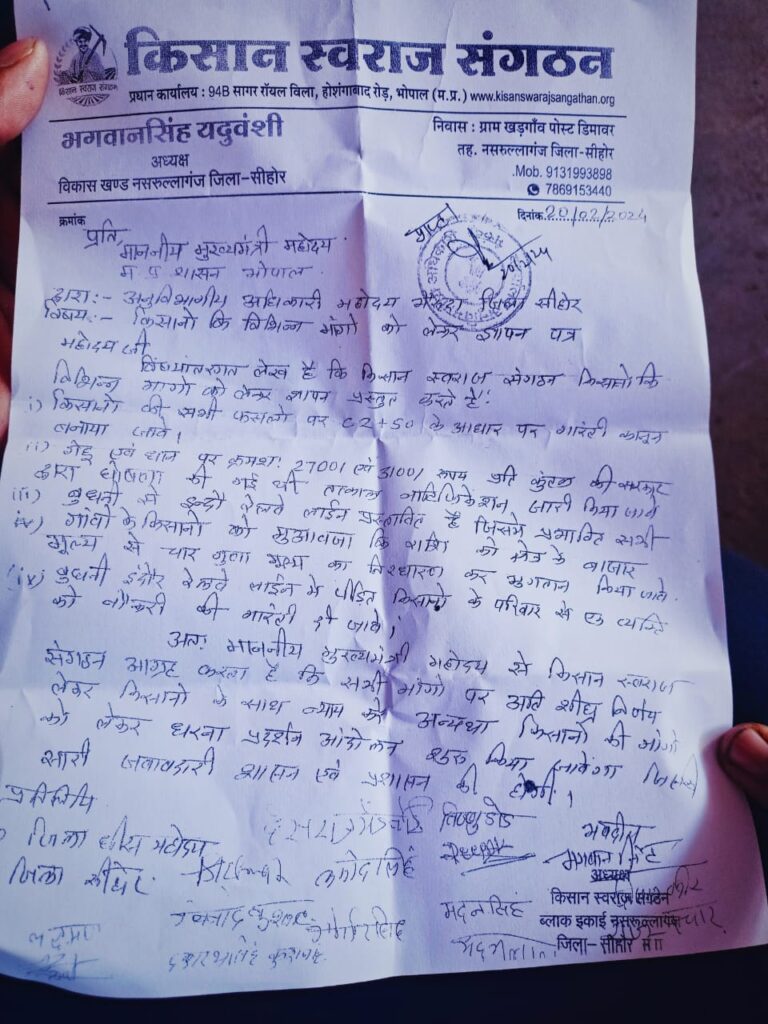 किसान स्वराज संगठन
किसान स्वराज संगठन
प्रधान कार्यालय : 94B सागर रॉयल विला, होशंगाबाद रोड़, भोपाल (म.प्र.) www.kisanswarajsangathan.org
भगवानसिंह यदुवंशी
अध्यक्ष
विकास खण्ड नसरुल्लागंज जिला-सीहोर
निवास : ग्राम खड़गाँव पोस्ट डिमावर
तह. नसरुल्लागंज जिला-सीहोर
.Mob. 9131993898
7869153440
क्रमांक
दिनांक 20/02/2024
प्रति,
माननीय मुख्यमंत्री महोदय
म प्र शासन भोपाल
द्वारा:- अनुविभागीय अधिकारी महोदय जिला सीहोर
विषय:- किसानो कि विभिन्न मांगो को लेकर ज्ञापन पत्र
महोदय जी
विषयांतरगत लेख है कि किसान स्वराज संगठन किसानो कि
विभिन्न मांगो को लेकर ज्ञापन प्रस्तुत करते है!
i) किसानो की सभी फसलो पर C2+50 के आधार पर गारंटी कानून
बनाया जावे।
ii) गेहू एवं धान पर क्रमश: 2700/ एवं 3100/ रूपय प्रति कुंटल की सरकार
द्वारा घोषणा की गई थी तत्काल नोटिफिकेशन जारी किया जावे
iii) बुधनी से इन्दौर रेलवे लाईन प्रस्तावित है जिसमे प्रभावित सभी
गांवो के किसानो को मुआवजा कि राशि को क्षेत्र के बाजार
मूल्य से चार गुना मूल्य का निरधारण कर भुगतान किया जावे
iv) बुधनी इंदौर रेलवे लाईन मे पीड़ित किसानो के परिवार से एक व्यक्ति
को नौकरी की गारंटी दी जावे।
अतः माननीय मुख्यमंत्री महोदय से किसान स्वराज
संगठन आग्रह करता है कि सभी मांगो पर अति शीघ्र निर्णय
लेकर किसानो के साथ न्याय करे अन्यथा किसानो की मांगो
को लेकर धरना प्रदर्शन आंदोलन शुरू किया जावेगा जिसकी
सारी जवाबदारी शासन एवं प्रशासन की होगी।
प्रतिलिपि
जिला महोदय
जिला सीहोर
मदनसिंह
भगवान सिंह
अध्यक्ष
किसान स्वराज संगठन
ब्लाक इकाई नसरुल्लागंज
जिला- सीहोर